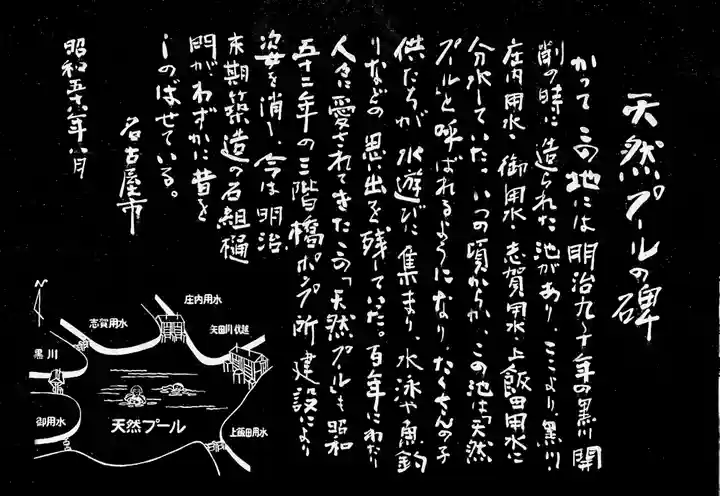 天然プールの碑
かつてこの地には明治九〜十年の黒川開
削の時に造られた池があり、ここより、黒川・
庄内用水・御用水・志賀用水・上飯田用水に
分水していた。いつの頃からか、この池は「天然
プール」と呼ばれるようになり、たくさんの子
供たちが水遊びに集まり、水泳や魚釣
りなどの思い出を残していた。百年にわたり
人々に愛されてきたこの「天然プール」も昭和
五十二年の三階橋ポンプ所建設により
姿を消し、今は明治
末期築造の石組樋
門がわずかに昔を
しのばせている。
名古屋市
昭和五十六年八月
庄内用水
志賀用水
矢田川伏越
黒川
御用水
天然プール
上飯田用水